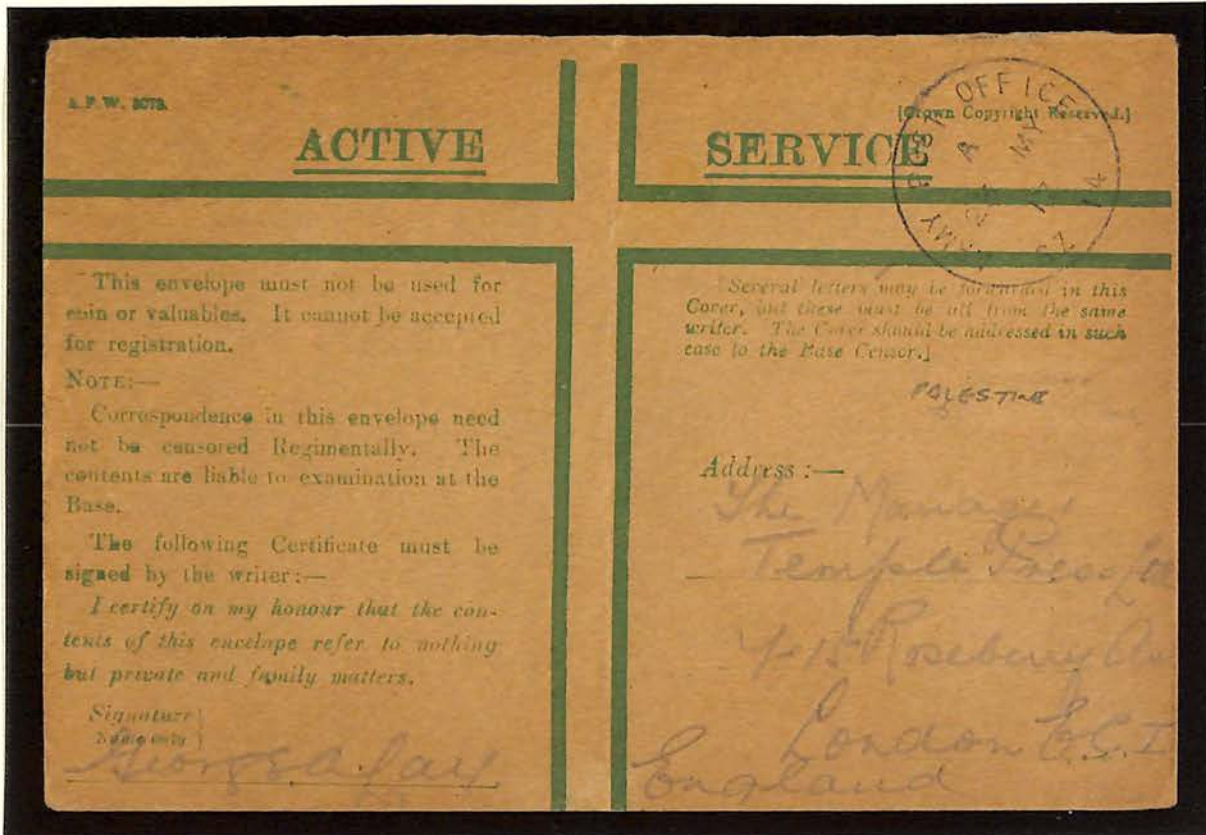 A.F.W. 3078.
[Crown Copyright Reserved.]
ACTIVE SERVICE
ARMY POST OFFICE
A
MY
17
SZ 14
This envelope must not be used for
coin or valuables. It cannot be accepted
for registration.
NOTE:—
Correspondence in this envelope need
not be censored Regimentally. The
contents are liable to examination at the
Base.
The following Certificate must be
signed by the writer:—
I certify on my honour that the con-
tents of this envelope refer to nothing
but private and family matters.
Signature }
Name only }
George A.
[Several letters may be forwarded in this
Cover, but these must be all from the same
writer. The Cover should be addressed in such
case to the Base Censor.]
PALESTINE
Address :—
The Manager
Temple Press
Rosebery Av
London E.C.1
England